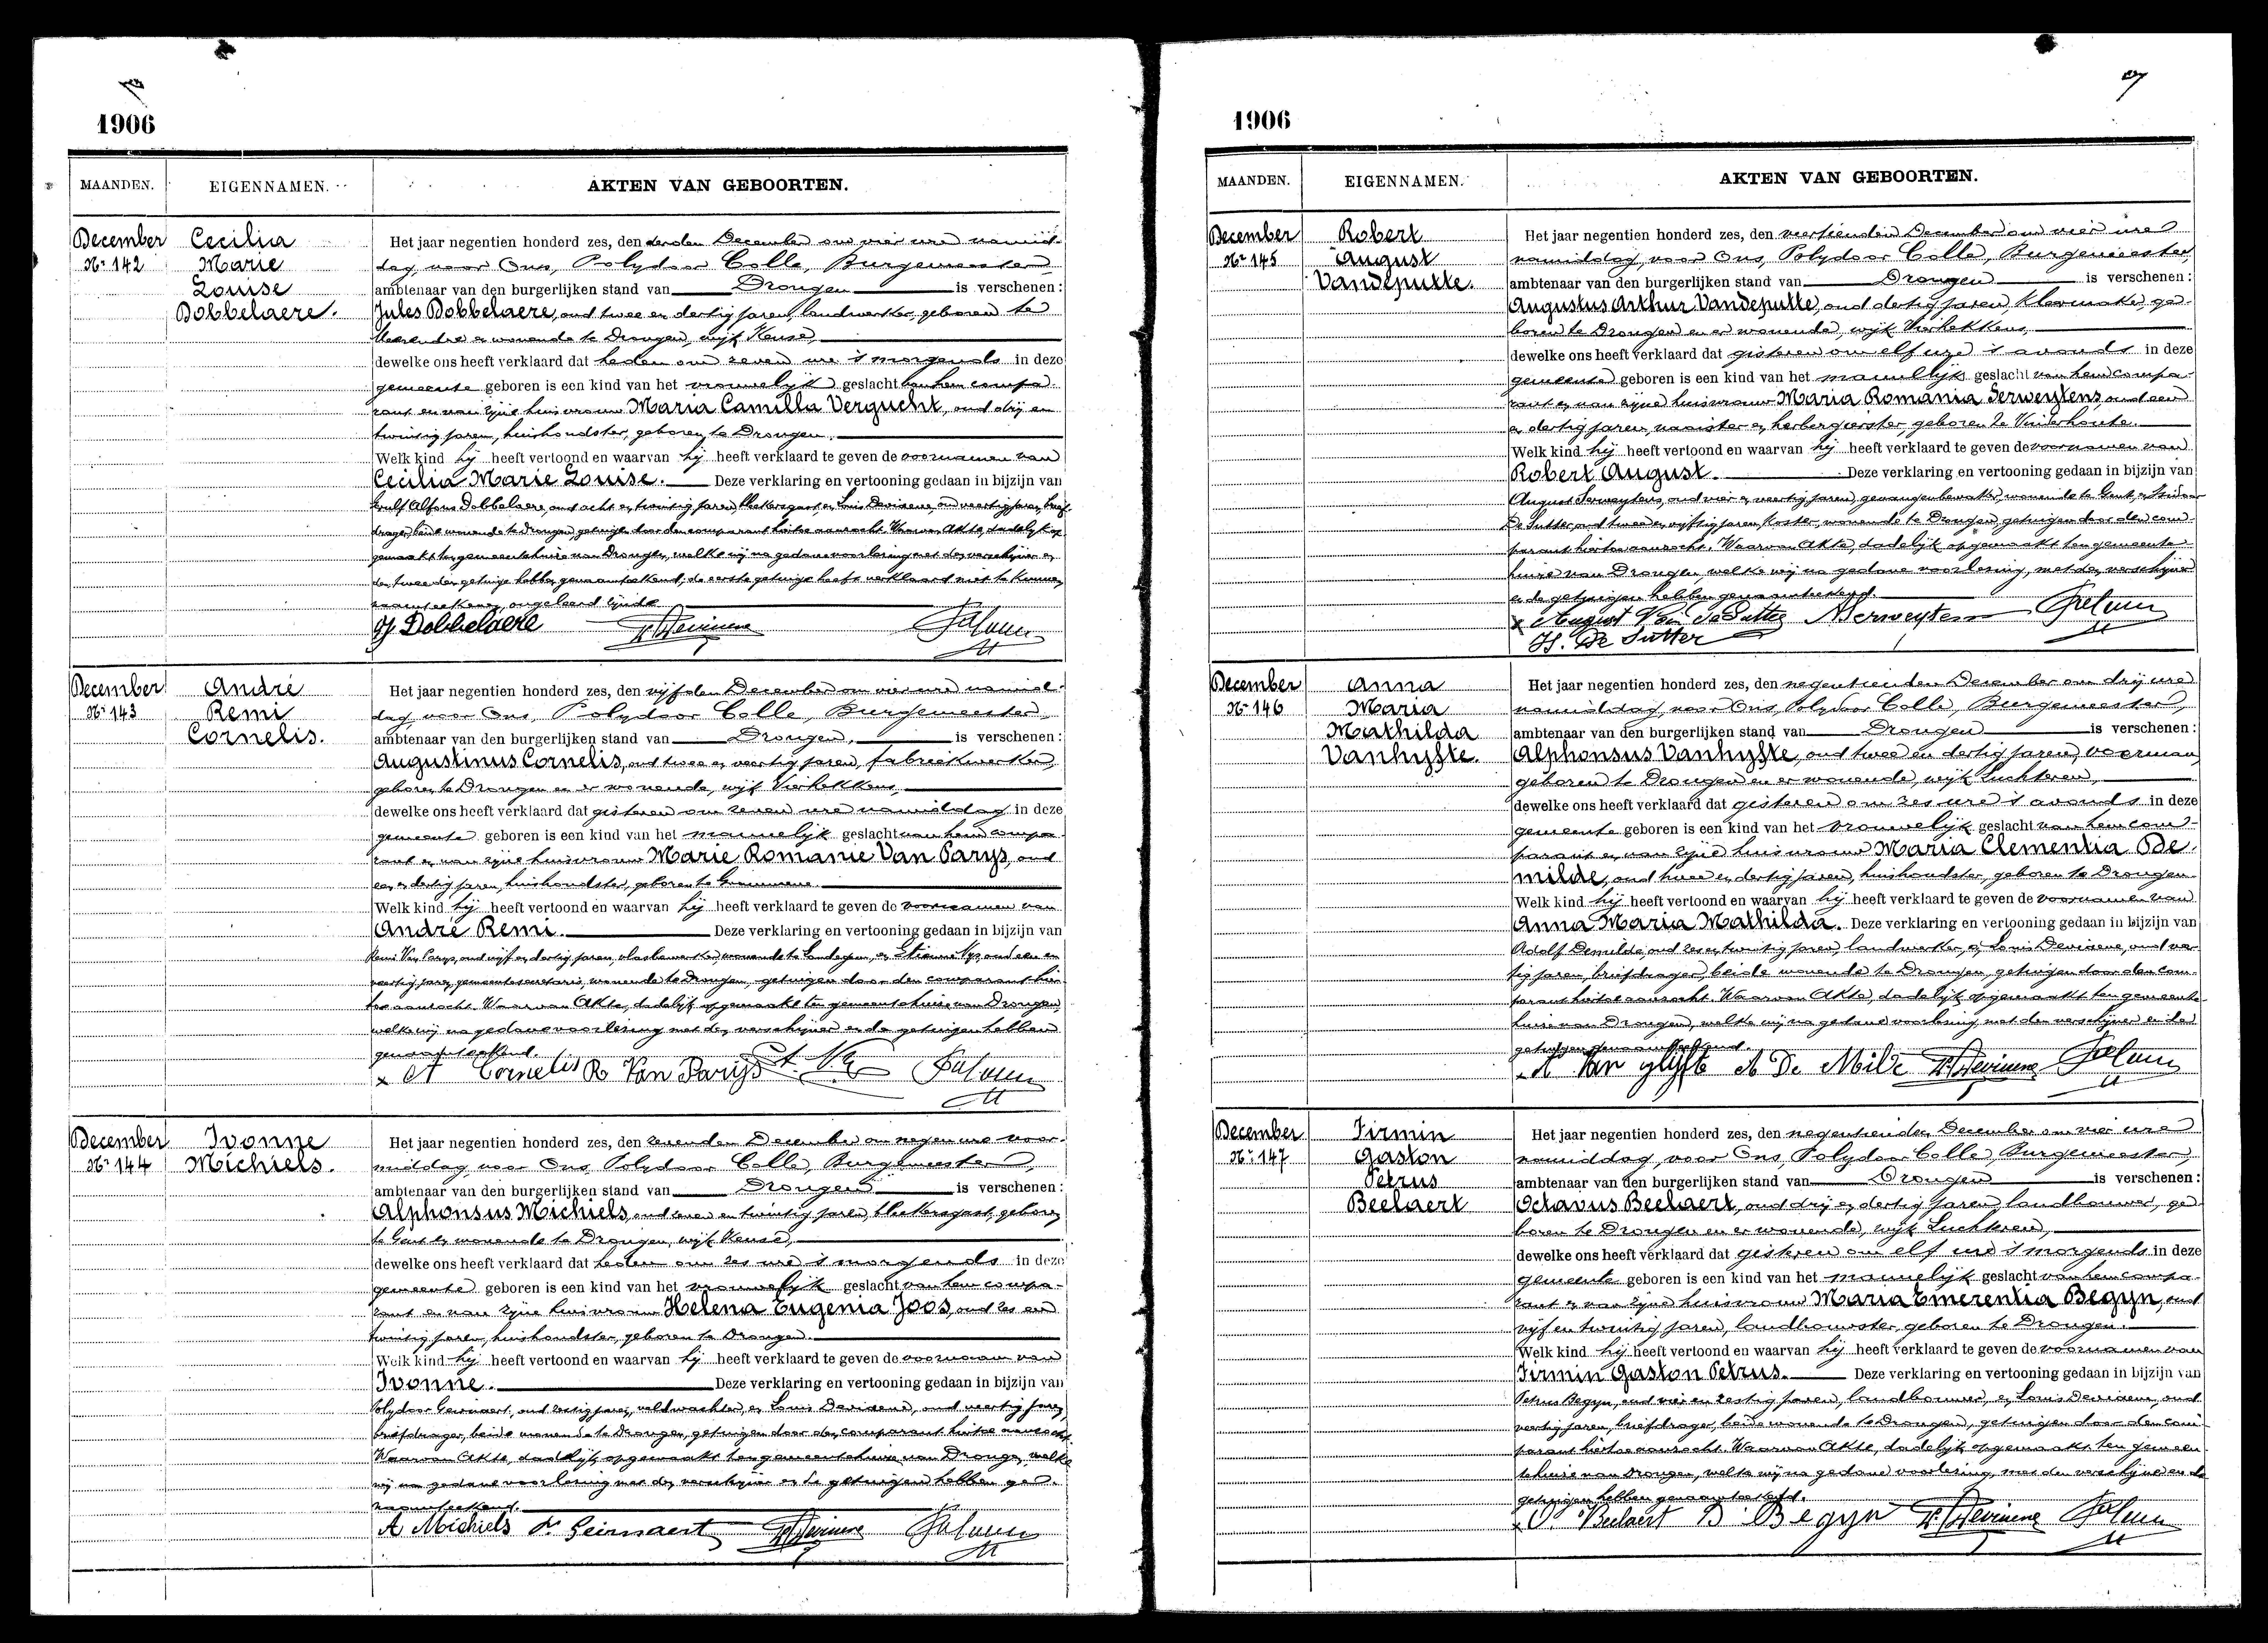 1906
MAANDEN. EIGENNAMEN. AKTEN VAN GEBOORTEN.
December
Nr 142
Cecilia
Marie
Louise
Dobbelaere.
Het jaar negentien honderd zes, den derden December om vier ure namid-
dag, voor Ons, Polydoor Colle, Burgemeester,
ambtenaar van den burgerlijken stand van Drongen is verschenen:
Jules Dobbelaere, oud twee en dertig jaren, landwerker, geboren te
en wonende te Drongen, wijk Keuse,
dewelke ons heeft verklaard dat heden om zeven ure 's morgends in deze
gemeente geboren is een kind van het vrouwelijk geslacht van hem compa-
rant en van zijne huisvrouw Maria Camilla Vergucht, oud drij en
twintig jaren, huishoudster, geboren te Drongen.
Welk kind hij heeft vertoond en waarvan hij heeft verklaard te geven de voornamen van
Cecilia Marie Louise. Deze verklaring en vertooning gedaan in bijzijn van
Alfons Dobbelaere, oud acht en twintig jaren, en Louis Devisene, oud veertig jaren, brief-
drager, beide wonende te Drongen, getuigen door den comparant hiertoe aanzocht. Waarvan Akte, dadelijk op-
gemaakt ten gemeentehuize van Drongen, welke wij na gedane voorlezing met den verschijner en
den tweeden getuige hebben genaamteekend; de eerste getuige heeft verklaard niet te kunnen
naamteekenen, ongeleerd zijnde.
J. Dobbelaere
December
Nr 143
André
Remi
Cornelis.
Het jaar negentien honderd zes, den vijfden December om vier ure namid-
dag, voor Ons, Polydoor Colle, Burgemeester,
ambtenaar van den burgerlijken stand van Drongen, is verschenen:
Augustinus Cornelis, oud twee en veertig jaren, fabriekwerker,
geboren te Drongen en er wonende, wijk Vierhekkens,
dewelke ons heeft verklaard dat gisteren om zeven ure namiddag in deze
gemeente geboren is een kind van het mannelijk geslacht van hem compa-
rant en van zijne huisvrouw Marie Romanie Van Parys, oud
een en dertig jaren, huishoudster, geboren te
Welk kind hij heeft vertoond en waarvan hij heeft verklaard te geven de voornamen van
André Remi. Deze verklaring en vertooning gedaan in bijzijn van
Remi Van Parys, oud vijf en dertig jaren, vlasbewerker, wonende te Landegem, en Etienne Nys, oud een en
veertig jaren, gemeentesecretaris, wonende te Drongen, getuigen door den comparant hier-
toe aanzocht. Waarvan Akte, dadelijk opgemaakt ten gemeentehuize van Drongen,
welke wij na gedane voorlezing met den verschijner en de getuigen hebben
genaamteekend.
A Cornelis R Van Parijs
December
Nr 144
Ivonne
Michiels.
Het jaar negentien honderd zes, den zevenden December om negen ure voor-
middag, voor Ons, Polydoor Colle, Burgemeester,
ambtenaar van den burgerlijken stand van Drongen is verschenen:
Alphonsus Michiels, oud zeven en twintig jaren, bleekersgast, geboren
te Gent en wonende te Drongen, wijk Keuse,
dewelke ons heeft verklaard dat heden om zes ure 's morgends in deze
gemeente geboren is een kind van het vrouwelijk geslacht van hem compa-
rant en van zijne huisvrouw Helena Eugenia Joos, oud zes en
twintig jaren, huishoudster, geboren te Drongen.
Welk kind hij heeft vertoond en waarvan hij heeft verklaard te geven de voornaam van
Ivonne. Deze verklaring en vertooning gedaan in bijzijn van
Polydoor Geirnaert, oud zestig jaren, veldwachter, en Louis Devisene, oud veertig jaren,
briefdrager, beide wonende te Drongen, getuigen door den comparant hiertoe aanzocht.
Waarvan Akte, dadelijk opgemaakt ten gemeentehuize van Drongen, welke
wij na gedane voorlezing met den verschijner en de getuigen hebben ge-
naamteekend.
A Michiels Geirnaert
1906
MAANDEN. EIGENNAMEN. AKTEN VAN GEBOORTEN.
December
Nr 145
Robert
August
Vandeputte.
Het jaar negentien honderd zes, den veertienden December om vier ure
namiddag, voor Ons, Polydoor Colle, Burgemeester,
ambtenaar van den burgerlijken stand van Drongen is verschenen:
Augustus Arthur Vandeputte, oud dertig jaren, kleermaker, ge-
boren te Drongen en er wonende, wijk Vierhekkens,
dewelke ons heeft verklaard dat gisteren om elf ure 's avonds in deze
gemeente geboren is een kind van het mannelijk geslacht van hem compa-
rant en van zijne huisvrouw Maria Romania Serweytens, oud een
en dertig jaren, naaister en herbergierster, geboren te Vinderhoute.
Welk kind hij heeft vertoond en waarvan hij heeft verklaard te geven de voornamen van
Robert August. Deze verklaring en vertooning gedaan in bijzijn van
August Serweytens, oud vier en veertig jaren, gevangenbewaker, wonende te Gent, en
De Sutter, oud twee en vijftig jaren, koster, wonende te Drongen, getuigen door den com-
parant hiertoe aanzocht. Waarvan Akte, dadelijk opgemaakt ten gemeente-
huize van Drongen, welke wij na gedane voorlezing, met den verschijner
en de getuigen hebben genaamteekend.
August Van De Putte A Serweytens
De Sutter
December
Nr 146
Anna
Maria
Mathilda
Vanhyfte.
Het jaar negentien honderd zes, den negentienden December om drij ure
namiddag, voor Ons, Polydoor Colle, Burgemeester,
ambtenaar van den burgerlijken stand van Drongen is verschenen:
Alphonsus Vanhyfte, oud twee en dertig jaren, voerman,
geboren te Drongen en er wonende, wijk Luchteren,
dewelke ons heeft verklaard dat gisteren om zes ure 's avonds in deze
gemeente geboren is een kind van het vrouwelijk geslacht van hem com-
parant en van zijne huisvrouw Maria Clementia De-
milde, oud twee en dertig jaren, huishoudster, geboren te Drongen.
Welk kind hij heeft vertoond en waarvan hij heeft verklaard te geven de voornamen van
Anna Maria Mathilda. Deze verklaring en vertooning gedaan in bijzijn van
Adolf Demilde, oud zes en twintig jaren, landwerker, en Louis Devisene, oud veer-
tig jaren, briefdrager, beide wonende te Drongen, getuigen door den com-
parant hiertoe aanzocht. Waarvan Akte, dadelijk opgemaakt ten gemeente-
huize van Drongen, welke wij na gedane voorlezing, met den verschijner en de
getuigen genaamteekend.
A Van Hyfte A De Milde
December
Nr 147
Firmin
Gaston
Petrus
Beelaert
Het jaar negentien honderd zes, den negentienden December om vier ure
namiddag, voor Ons, Polydoor Colle, Burgemeester,
ambtenaar van den burgerlijken stand van Drongen is verschenen:
Octavus Beelaert, oud drij en dertig jaren, landbouwer, ge-
boren te Drongen en er wonende, wijk Luchteren,
dewelke ons heeft verklaard dat gisteren om elf ure 's morgends in deze
gemeente geboren is een kind van het mannelijk geslacht van hem compa-
rant en van zijne huisvrouw Maria Emerentia Begyn, oud
vijf en twintig jaren, landbouwster, geboren te Drongen.
Welk kind hij heeft vertoond en waarvan hij heeft verklaard te geven de voornamen van
Firmin Gaston Petrus. Deze verklaring en vertooning gedaan in bijzijn van
Petrus Begyn, oud vier en zestig jaren, landbouwer, en Louis Devisene, oud
veertig jaren, briefdrager, beide wonende te Drongen, getuigen door den com-
parant hiertoe aanzocht. Waarvan Akte, dadelijk opgemaakt ten gemeen-
tehuize van Drongen, welke wij na gedane voorlezing, met den verschijner en de
getuigen hebben genaamteekend.
O. Beelaert B Begyn